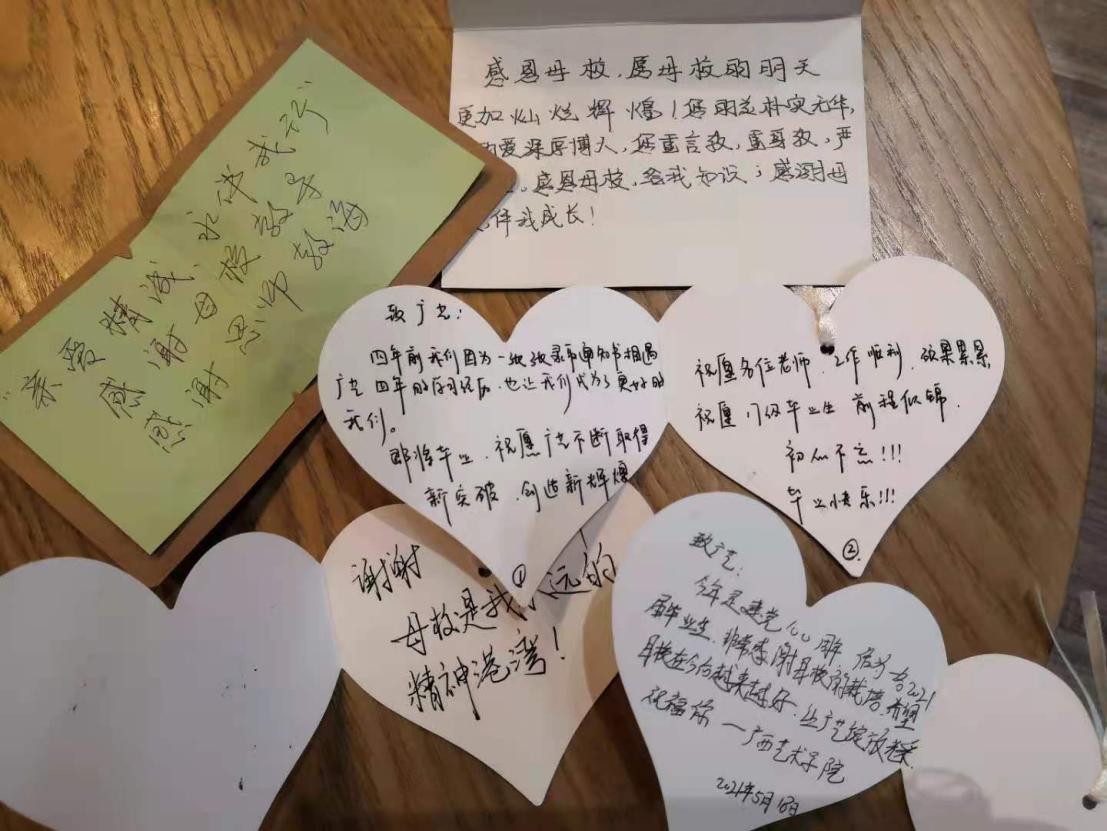 感恩母校，愿母校的明天
更加灿烂辉煌！您朴实无华，
爱深厚博大，您重言教，重身教，严
感恩母校，给我知识；感谢母
伴我成长！
"亲爱精诚 永深武行"
感谢母校
感谢恩师教诲
致广艺：
四年前我们因为一纸录取通知书相遇
广艺四年的学习经历，也让我们成为了更好的
我们。
即将毕业，祝愿广艺不断取得
新突破，创造新辉煌
①
祝愿各位老师，工作顺利，硕果累累，
祝愿17级毕业生 前程似锦.
初心不忘!!!
毕业快乐!!!
②
谢谢
母校是我永远的
精神港湾！
致广艺：
今年是建党100周年 作为2021
届毕业生，非常感谢母校的栽培，希望
母校在今后越来越好，让广艺绽放光采.
祝福你 — 广西艺术学院
2021年5月18日